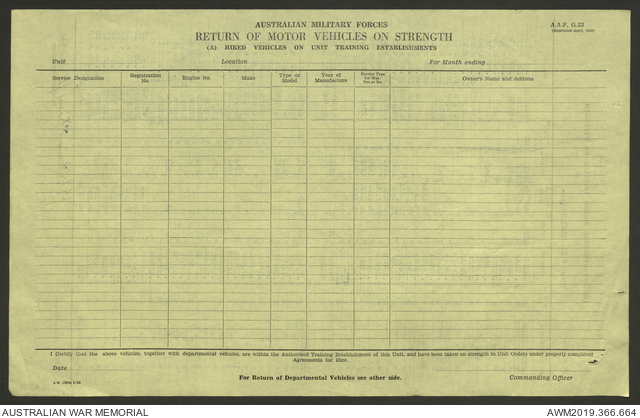 AUSTRALIAN MILITARY FORCES
A.A.F. G.23
RETURN OF MOTOR VEHICLES ON STRENGTH
(A) HIRED VEHICLES ON UNIT TRAINING ESTABLISHMENTS
Unit Location For Month ending
Service Designation Registration No. Engine No. Make Type or Model Year of Manufacture Owner's Name and Address
I Certify that the above vehicles, together with departmental vehicles, are within the Authorised Training Establishment of this Unit, and have been taken on strength in Unit Orders under properly completed
Agreements for Hire.
Date
For Return of Departmental Vehicles see other side.
Commanding Officer
AUSTRALIAN WAR MEMORIAL
AWM2019.366.664